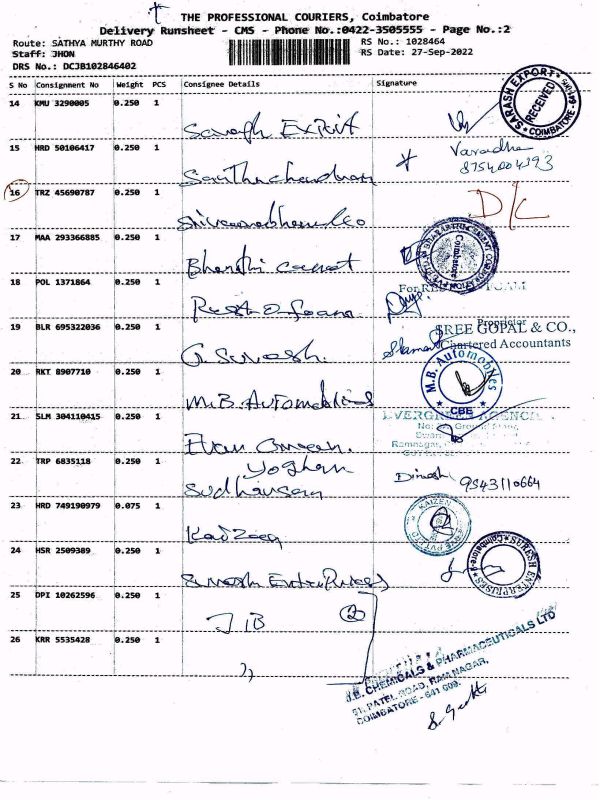 THE PROFESSIONAL COURIERS, Coimbatore
Delivery Runsheet - CMS - Phone No.:0422-3505555 - Page No.:2
Route: SATHYA MURTHY ROAD RS No.: 1028464
Staff: JHON RS Date: 27-Sep-2022
DRS No.: DCJB102846402
S No Consignment No Weight PCS Consignee Details Signature
14 KMU 3290005 0.250 1
SARASH EXPORT RECEIVED COIMBATORE
15 HRD 50106417 0.250 1
Varadha
8754004193
16 TRZ 45690787 0.250 1 D/L
17 MAA 293366885 0.250 1
Coimbatore
18 POL 1371864 0.250 1
For FOAM
Proprietor
19 BLR 695322036 0.250 1 G. Suresh.
SREE GOPAL & CO.,
Chartered Accountants
20 RKT 8907710 0.250 1 M.B. Automobiles
M.B. Automobiles CBE
21 SLM 304110415 0.250 1 Evan Green.
EVERGREEN AGENCI
22 TRP 6835118 0.250 1 Yoghan
Sudharsan
Dinesh 9543110664
23 HRD 749190979 0.075 1 Kaizen
KAIZEN
24 HSR 2509389 0.250 1 Suresh Enterprises
SURESH ENTERPRISES Coimbatore
25 DPI 10262596 0.250 1 JB (2)
26 KRR 5535428 0.250 1 ,,
J.B. CHEMICALS & PHARMACEUTICALS LTD
51, PATEL ROAD, RAM NAGAR,
COIMBATORE - 641 009.